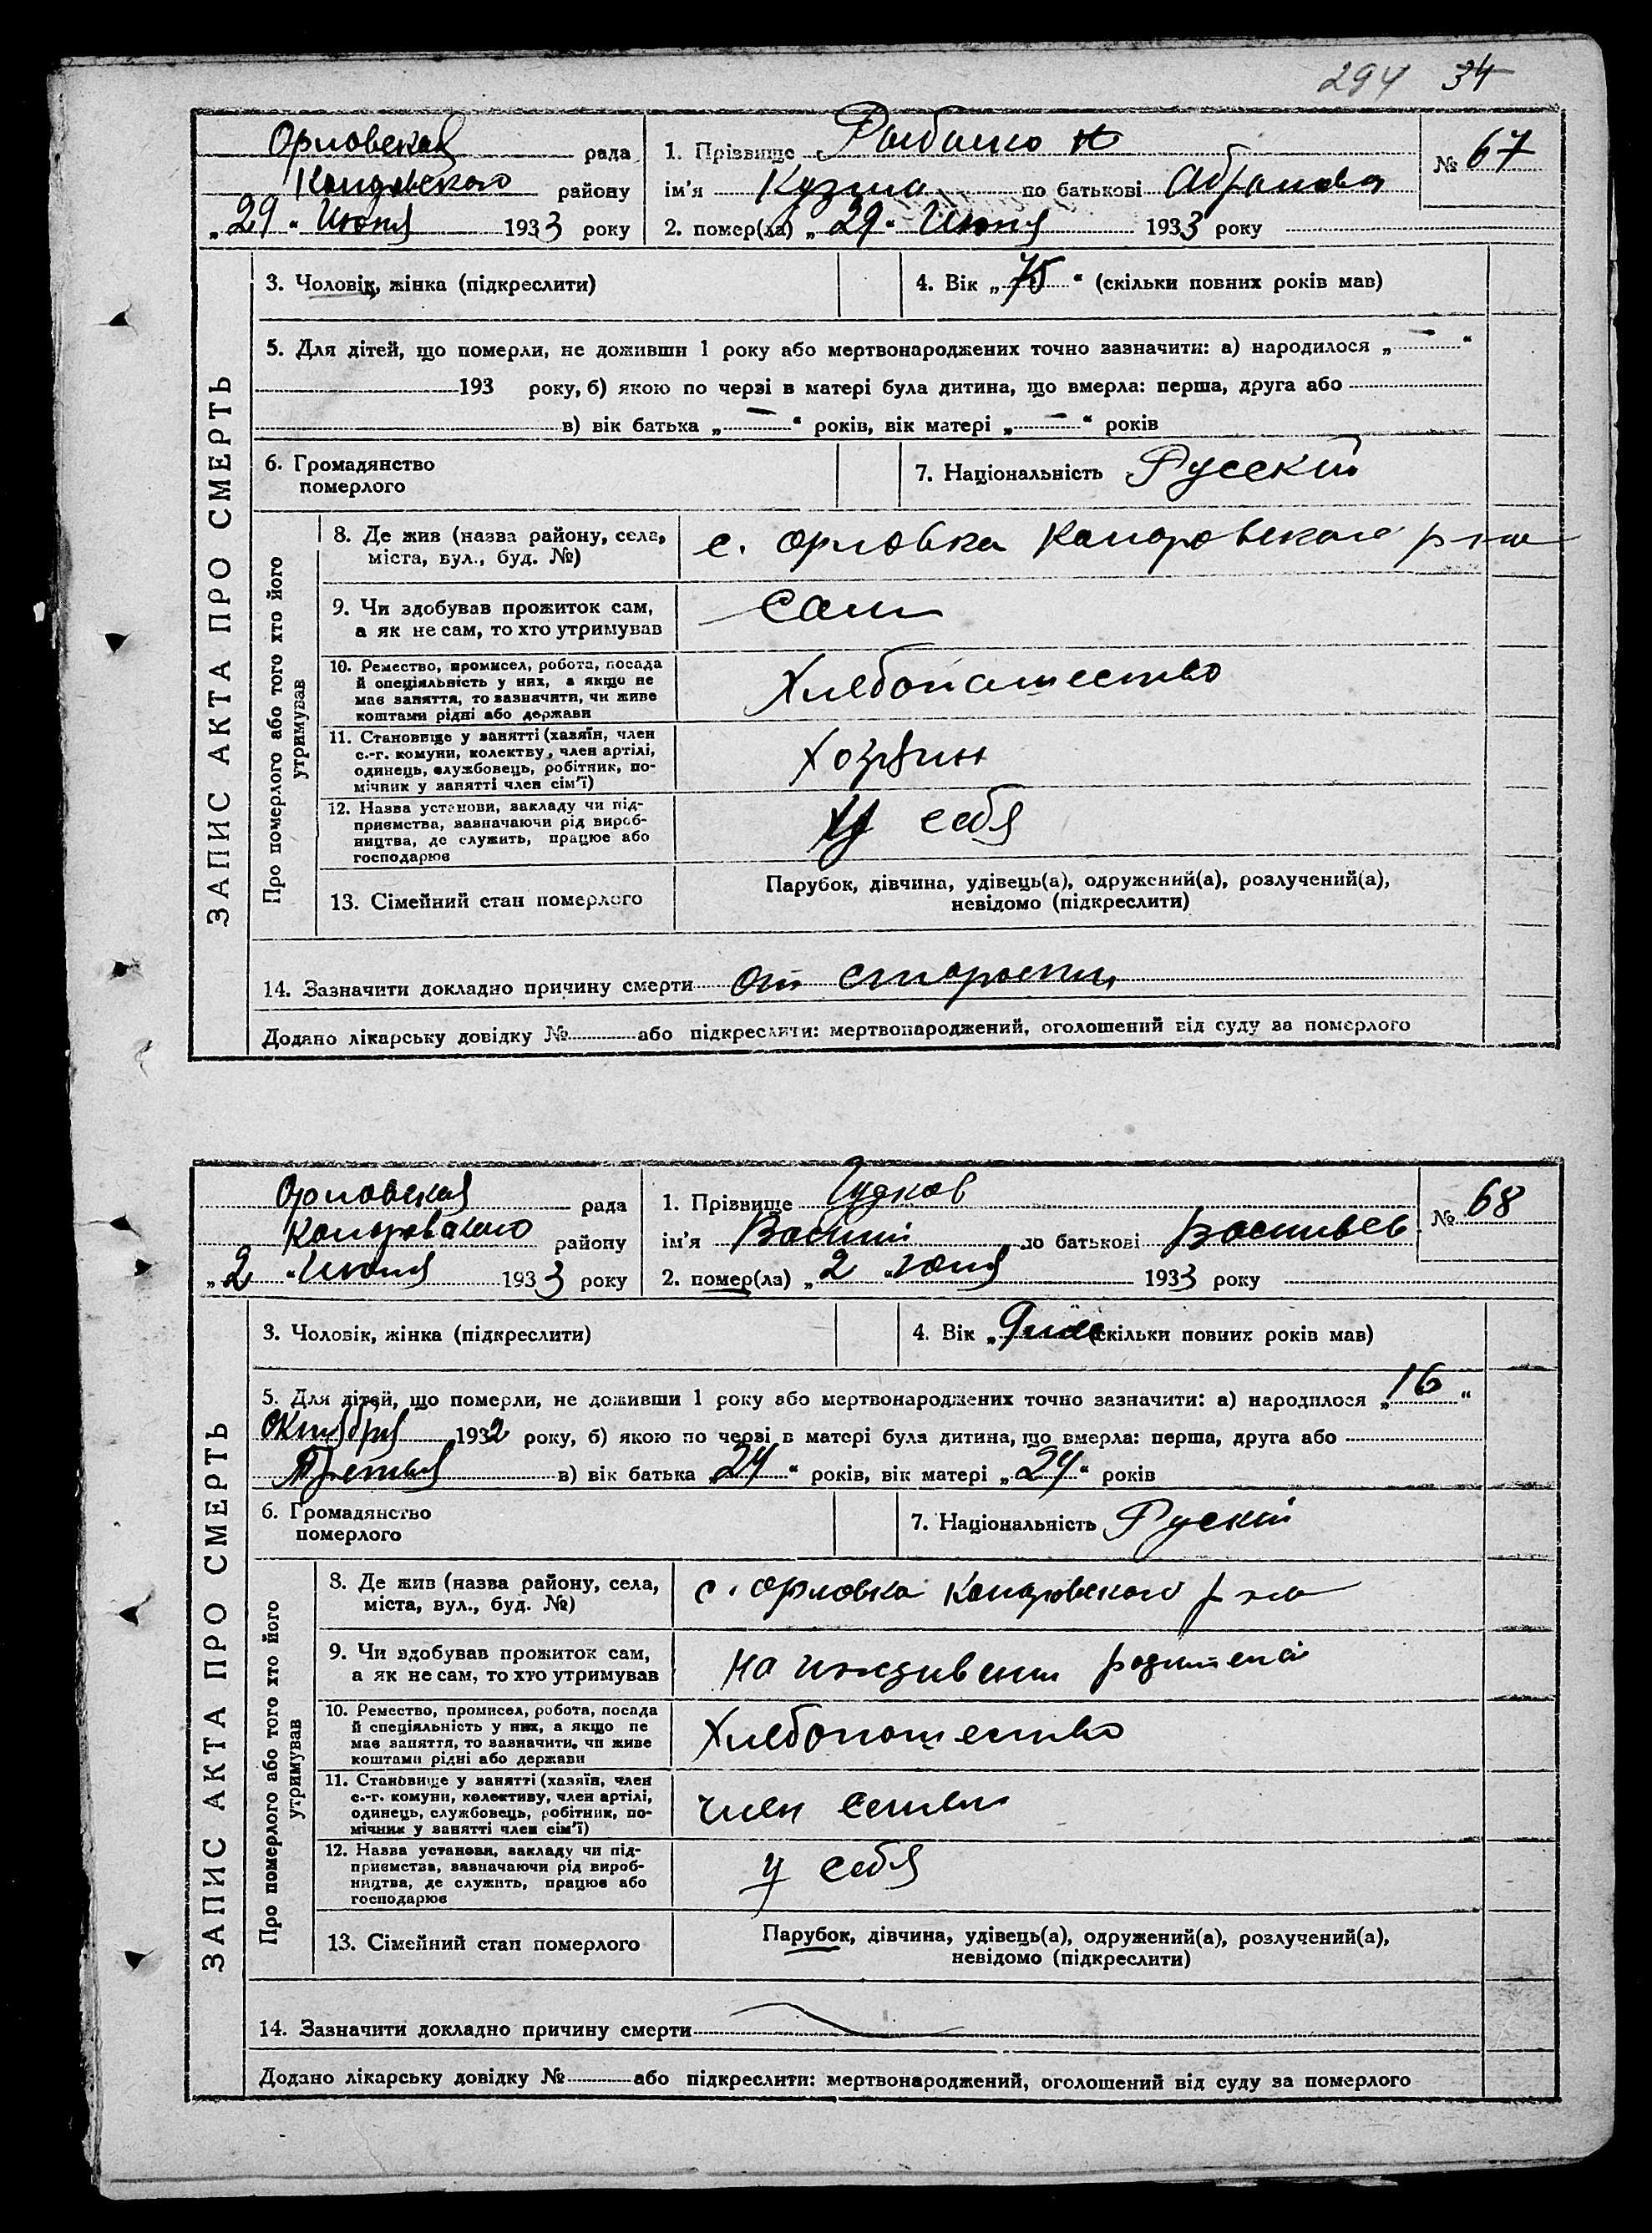 294 34
Орловская рада
Комаровского району
„29“ Июня 1933 року
1. Прізвище Рыбалко
ім'я Кузма по батькові Абрамова
2. помер(ла) „29“ Июня 1933 року
№ 67
ЗАПИС АКТА ПРО СМЕРТЬ
3. Чоловік, жінка (підкреслити)
4. Вік „75“ (скільки повних років мав)
5. Для дітей, що померли, не доживши 1 року або мертвонароджених точно зазначити: а) народилося „—“
193 року, б) якою по черзі в матері була дитина, що вмерла: перша, друга або
в) вік батька „—“ років, вік матері „—“ років
6. Громадянство
померлого
7. Національність Русский
Про померлого або того хто його
утримував
8. Де жив (назва району, села,
міста, вул., буд. №)
с. Орловка р-на
9. Чи здобував прожиток сам,
а як не сам, то хто утримував
Сам
10. Ремество, промисел, робота, посада
й спеціяльність у них, а якщо не
має заняття, то зазначити, чи живе
коштами рідні або держави
Хлебопашество
11. Становище у занятті (хазяїн, член
с.-г. комуни, колектву, член артілі,
одинець, службовець, робітник, по-
мічник у занятті член сім'ї)
Хозяин
12. Назва установи, закладу чи під-
приємства, зазначаючи рід вироб-
ництва, де служить, працює або
господарює
У себя
13. Сімейний стан померлого
Парубок, дівчина, удівець(а), одружений(а), розлучений(а),
невідомо (підкреслити)
14. Зазначити докладно причину смерти От старости
Додано лікарську довідку № або підкреслити: мертвонароджений, оголошений від суду за померлого
Орловская рада
району
„2“ Июня 1933 року
1. Прізвище Гудков
ім'я Василий по батькові Васильев
2. помер(ла) „2“ Июня 1933 року
№ 68
ЗАПИС АКТА ПРО СМЕРТЬ
3. Чоловік, жінка (підкреслити)
4. Вік „ (скільки повних років мав)
5. Для дітей, що померли, не доживши 1 року або мертвонароджених точно зазначити: а) народилося „16“
Октября 1932 року, б) якою по черзі в матері була дитина, що вмерла: перша, друга або
Третья в) вік батька „24“ років, вік матері „24“ років
6. Громадянство
померлого
7. Національність Руский
Про померлого або того хто його
утримував
8. Де жив (назва району, села,
міста, вул., буд. №)
с. Орловка р-на
9. Чи здобував прожиток сам,
а як не сам, то хто утримував
На иждивении родителей
10. Ремество, промисел, робота, посада
й спеціяльність у них, а якщо не
має заняття, то зазначити, чи живе
коштами рідні або держави
Хлебопашество
11. Становище у занятті (хазяїн, член
с.-г. комуни, колективу, член артілі,
одинець, службовець, робітник, по-
мічник у занятті член сім'ї)
член семьи
12. Назва установи, закладу чи під-
приємства, зазначаючи рід вироб-
ництва, де служить, працює або
господарює
У себя
13. Сімейний стан померлого
Парубок, дівчина, удівець(а), одружений(а), розлучений(а),
невідомо (підкреслити)
14. Зазначити докладно причину смерти
Додано лікарську довідку № або підкреслити: мертвонароджений, оголошений від суду за померлого